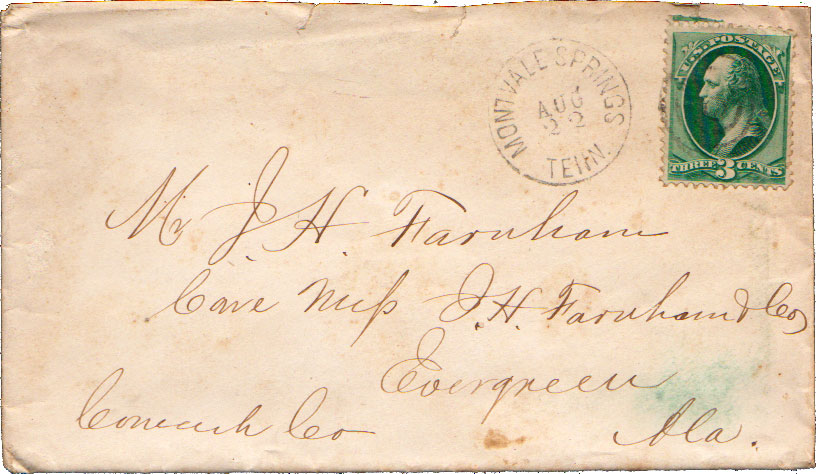 MONTVALE SPRINGS
AUG
22
TENN.
U.S. POSTAGE
THREE 3 CENTS
Mr J. H. Farnham
Care Mess J. H. Farnham & Co
Evergreen
Conecuh Co Ala.